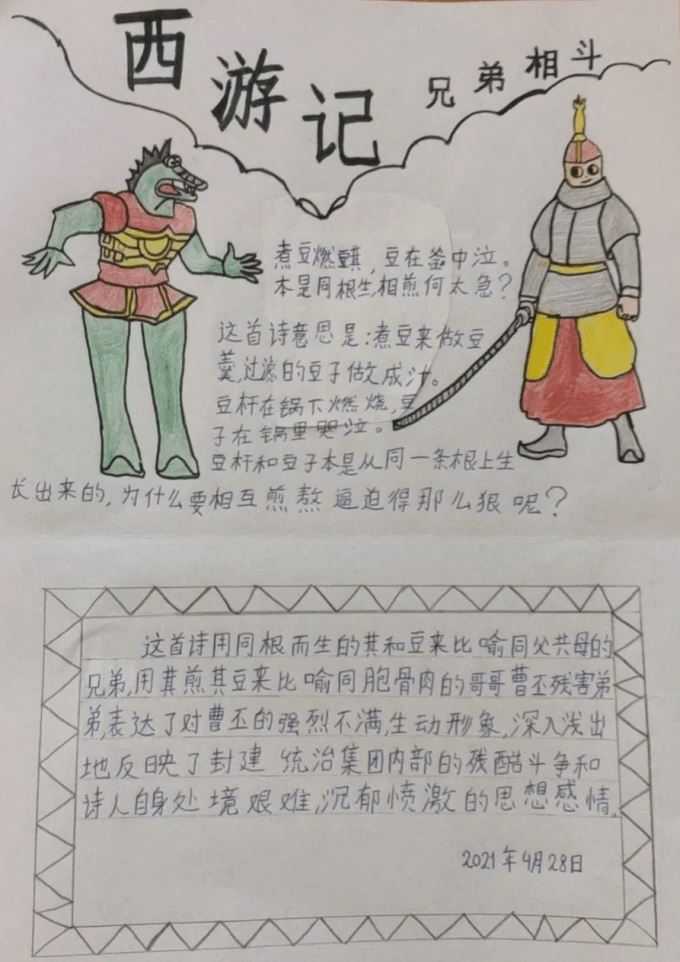 西游记
兄弟相斗
煮豆燃豆萁，豆在釜中泣。
本是同根生,相煎何太急？
这首诗意思是：煮豆来做豆
羹,过滤的豆子做成汁。
豆杆在锅下燃烧,豆
子在锅里哭泣。
豆杆和豆子本是从同一条根上生
长出来的,为什么要相互煎熬逼迫得那么狠呢？
这首诗用同根而生的其和豆来比喻同父共母的
兄弟,用其煎其豆来比喻同胞骨肉的哥哥曹丕残害弟
弟,表达了对曹丕的强烈不满,生动形象,深入浅出
地反映了封建统治集团内部的残酷斗争和
诗人自身处境艰难,沉郁愤激的思想感情。
2021年4月28日